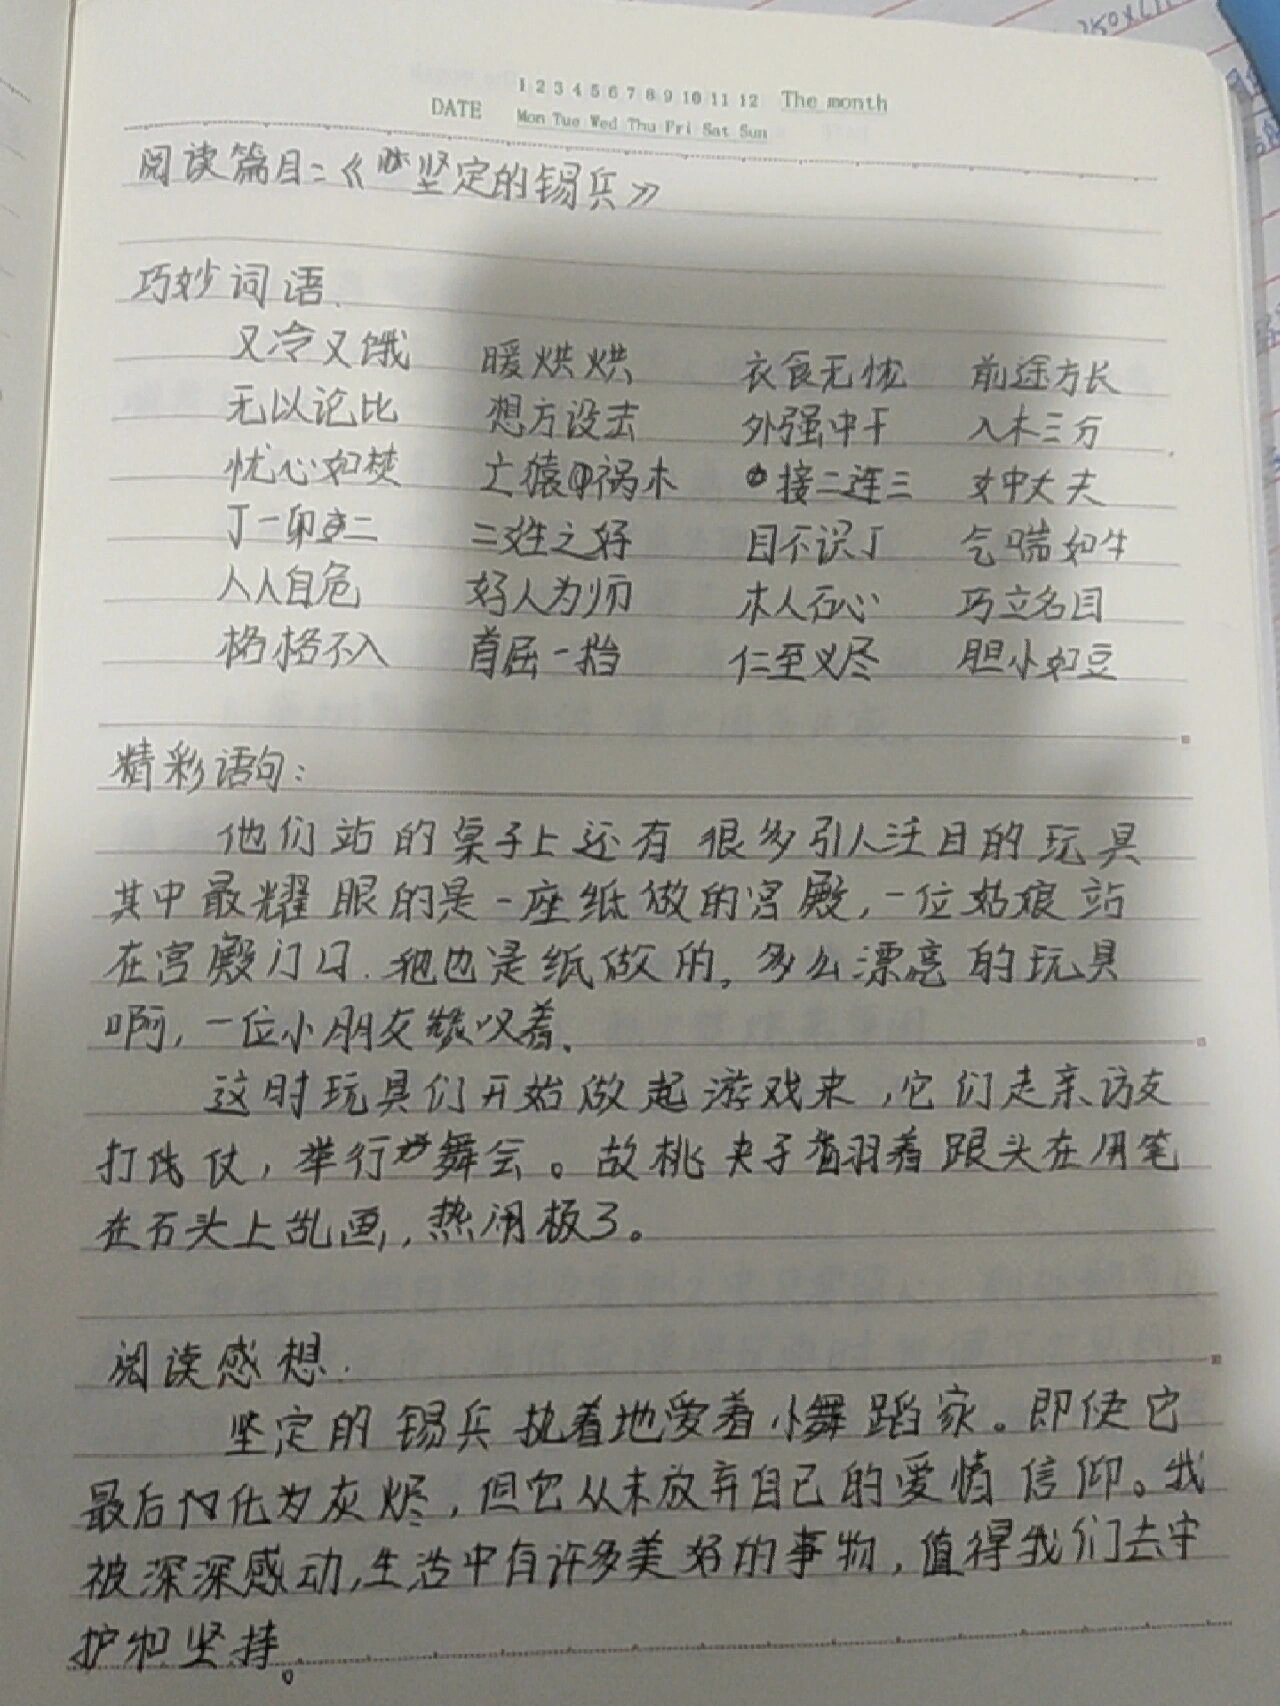 1 2 3 4 5 6 7 8 9 10 11 12 The month
DATE Mon Tue Wed Thu Fri Sat Sun
阅读篇目：《坚定的锡兵》
巧妙词语.
又冷又饿 暖烘烘 衣食无忧 前途方长
无以论比 想方设法 外强中干 入木三分
忧心如焚 亡猿祸木 接二连三 女中丈夫
丁一卯二 二姓之好 目不识丁 气喘如牛
人人自危 好人为师 木人石心 巧立名目
格格不入 首屈一指 仁至义尽 胆小如豆
精彩语句：
他们站的桌子上还有很多引人注目的玩具
其中最耀眼的是一座纸做的宫殿,一位姑娘站
在宫殿门口.她也是纸做的。多么漂亮的玩具
啊,一位小朋友赞叹着.
这时玩具们开始做起游戏来,它们走亲访友
打仗,举行舞会。故桃夹子翻着跟头在用笔
在石头上乱画,热闹极了。
阅读感想.
坚定的锡兵执着地爱着小舞蹈家。即使它
最后化为灰烬,但它从未放弃自己的爱情信仰。我
被深深感动,生活中有许多美好的事物,值得我们去守
护和坚持。